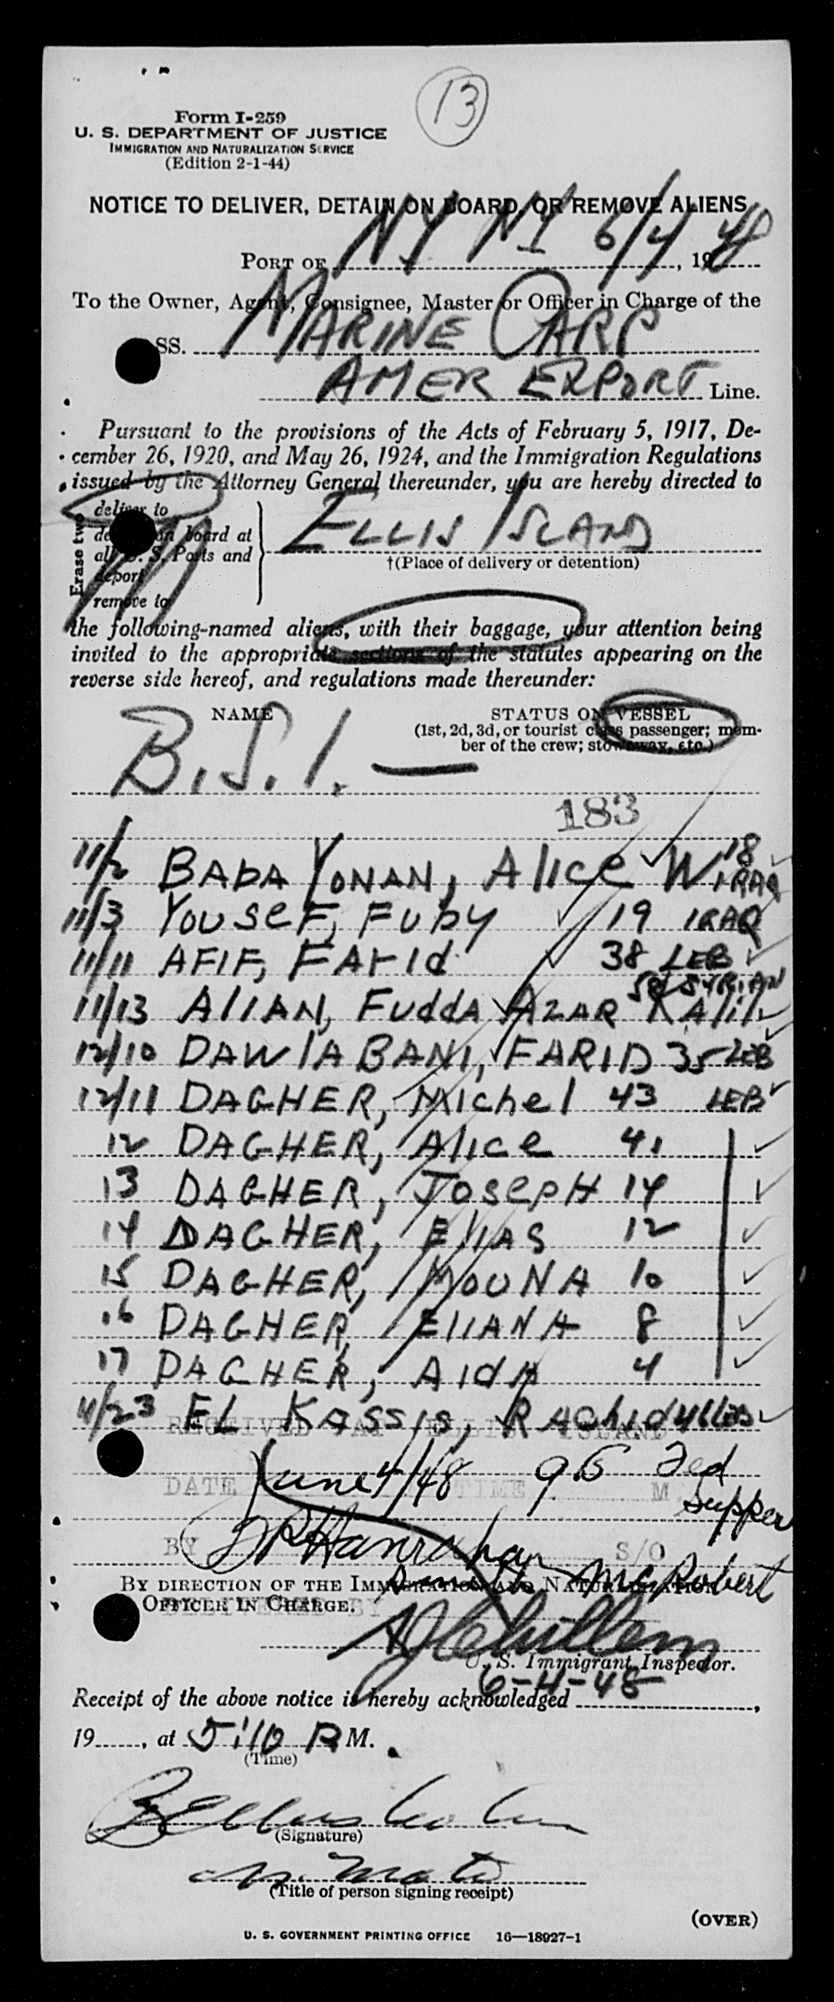 13
Form I-259
U. S. DEPARTMENT OF JUSTICE
IMMIGRATION AND NATURALIZATION SERVICE
(Edition 2-1-44)
NOTICE TO DELIVER, DETAIN ON BOARD, OR REMOVE ALIENS
PORT OF NY NY 6/4, 1948
To the Owner, Agent, Consignee, Master or Officer in Charge of the
SS. MARINE CARP
AMER EXPORT Line.
Pursuant to the provisions of the Acts of February 5, 1917, De-
cember 26, 1920, and May 26, 1924, and the Immigration Regulations
issued by the Attorney General thereunder, you are hereby directed to
Erase two
deliver to
on board at
all U. S. Ports and
deport
remove to
ELLIS ISLAND
†(Place of delivery or detention)
the following-named aliens, with their baggage, your attention being
invited to the appropriate sections of the statutes appearing on the
reverse side hereof, and regulations made thereunder:
NAME STATUS ON VESSEL
(1st, 2d, 3d, or tourist class passenger; mem-
ber of the crew; stowaway, etc.)
B.S.I. —
183
11/2 BAbA YONAN, Alice W 18 IRAQ
11/3 YOUSEF, Fuby 19 IRAQ
11/11 AFIF, FArid 38 LEB
11/13 AlIAN, FuddA AZAR KAlil 58 SYRIAN
12/10 DAWlABANI, FARID 35 LEB
12/11 DAGHER, Michel 43 LEB
12 DAGHER, Alice 41
13 DAGHER, JosepH 14
14 DAGHER, EliAS 12
15 DAGHER, MOUNA 10
16 DAGHER, EliANA 8
17 DAGHER, AidA 4
4/23 EL KASSIS, RAchid 46 LEB
RECEIVED AT ELLIS ISLAND
DATE June 4/48 TIME 9 M
Fed Supper
BY Hanrahan S/O
McRobert
BY DIRECTION OF THE IMMIGRATION AND NATURALIZATION
OFFICER IN CHARGE.
U. S. Immigrant Inspector.
6-4-48
Receipt of the above notice is hereby acknowledged ,
19 , at 5:10 P M.
(Time)
(Signature)
(Title of person signing receipt)
(OVER)
U. S. GOVERNMENT PRINTING OFFICE 16—18927-1